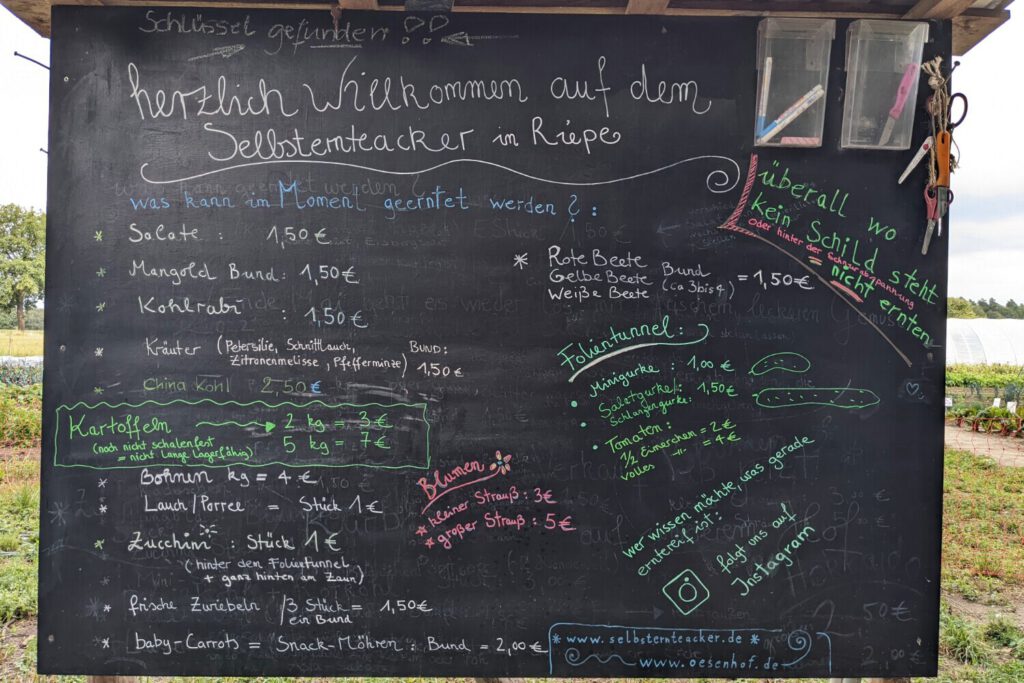 Schlüssel gefunden !?
herzlich Willkommen auf dem
Selbsternteacker in Riepe
was kann im Moment geerntet werden ? :
* Salate : 1,50 €
* Mangold Bund : 1,50 €
* Kohlrabi : 1,50 €
* Kräuter (Petersilie, Schnittlauch,
Zitronenmelisse, Pfefferminze) BUND: 1,50 €
* China Kohl 2,50 €
Kartoffeln → 2 kg = 3 €
(noch nicht schalenfest
= nicht lange lagerfähig) 5 kg = 7 €
* Bohnen kg = 4 €
* Lauch/Porree = Stück 1 €
* Zucchini : Stück 1 €
(hinter dem Folientunnel
+ ganz hinten am Zaun)
* frische Zwiebeln /3 Stück = 1,50 €
ein Bund
* baby-Carrots = Snack-Möhren : Bund = 2,00 €
Blumen
* kleiner Strauß : 3 €
* großer Strauß : 5 €
* Rote Beete
Gelbe Beete
Weiße Beete
Bund
(ca 3 bis 4) = 1,50 €
Folientunnel :
• Minigurke : 1,00 €
• Salatgurke/ : 1,50 €
Schlangengurke:
• Tomaten :
1/2 Eimerchen = 2 €
volles -"- = 4 €
wer wissen möchte, was gerade
erntereif ist :
folgt uns auf
Instagram
überall wo
kein Schild steht
oder hinter der Schnurabspannung
= nicht ernten
* www.selbsternteacker.de *
www.oesenhof.de